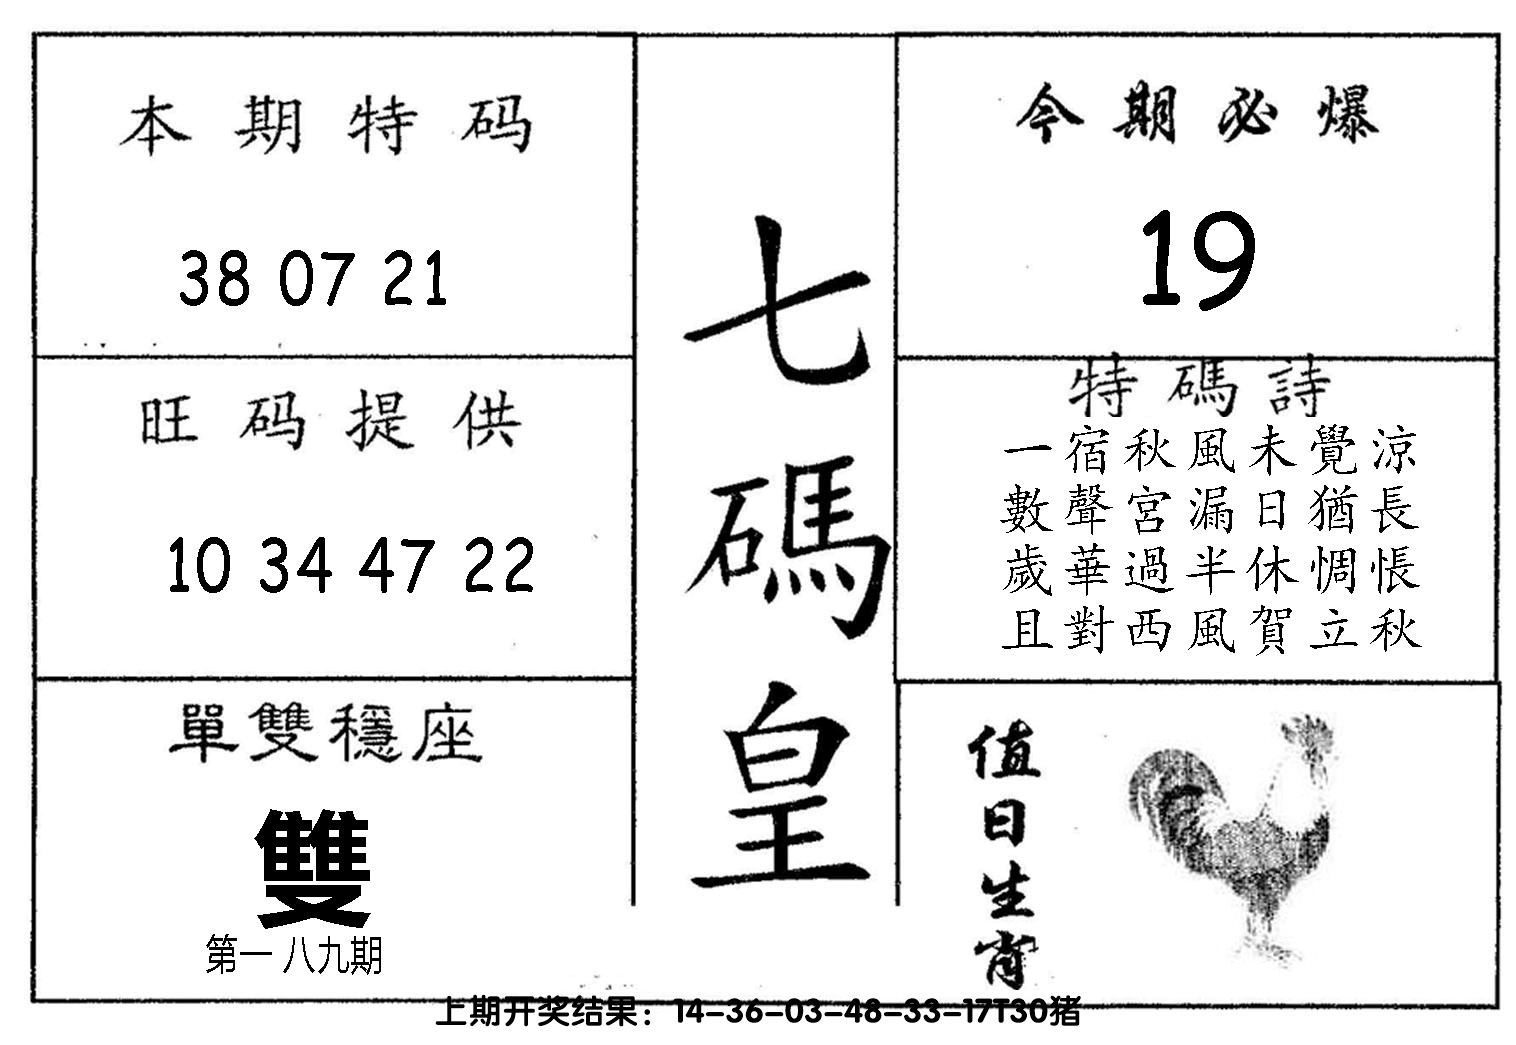 本期特码
38 07 21
旺码提供
10 34 47 22
單雙穩座
雙
第一八九期
七碼皇
今期必爆
19
特碼詩
一宿秋風未覺涼
數聲宮漏日猶長
歲華過半休惆悵
且對西風賀立秋
值日生肖
上期开奖结果：14-36-03-48-33-17T30猪